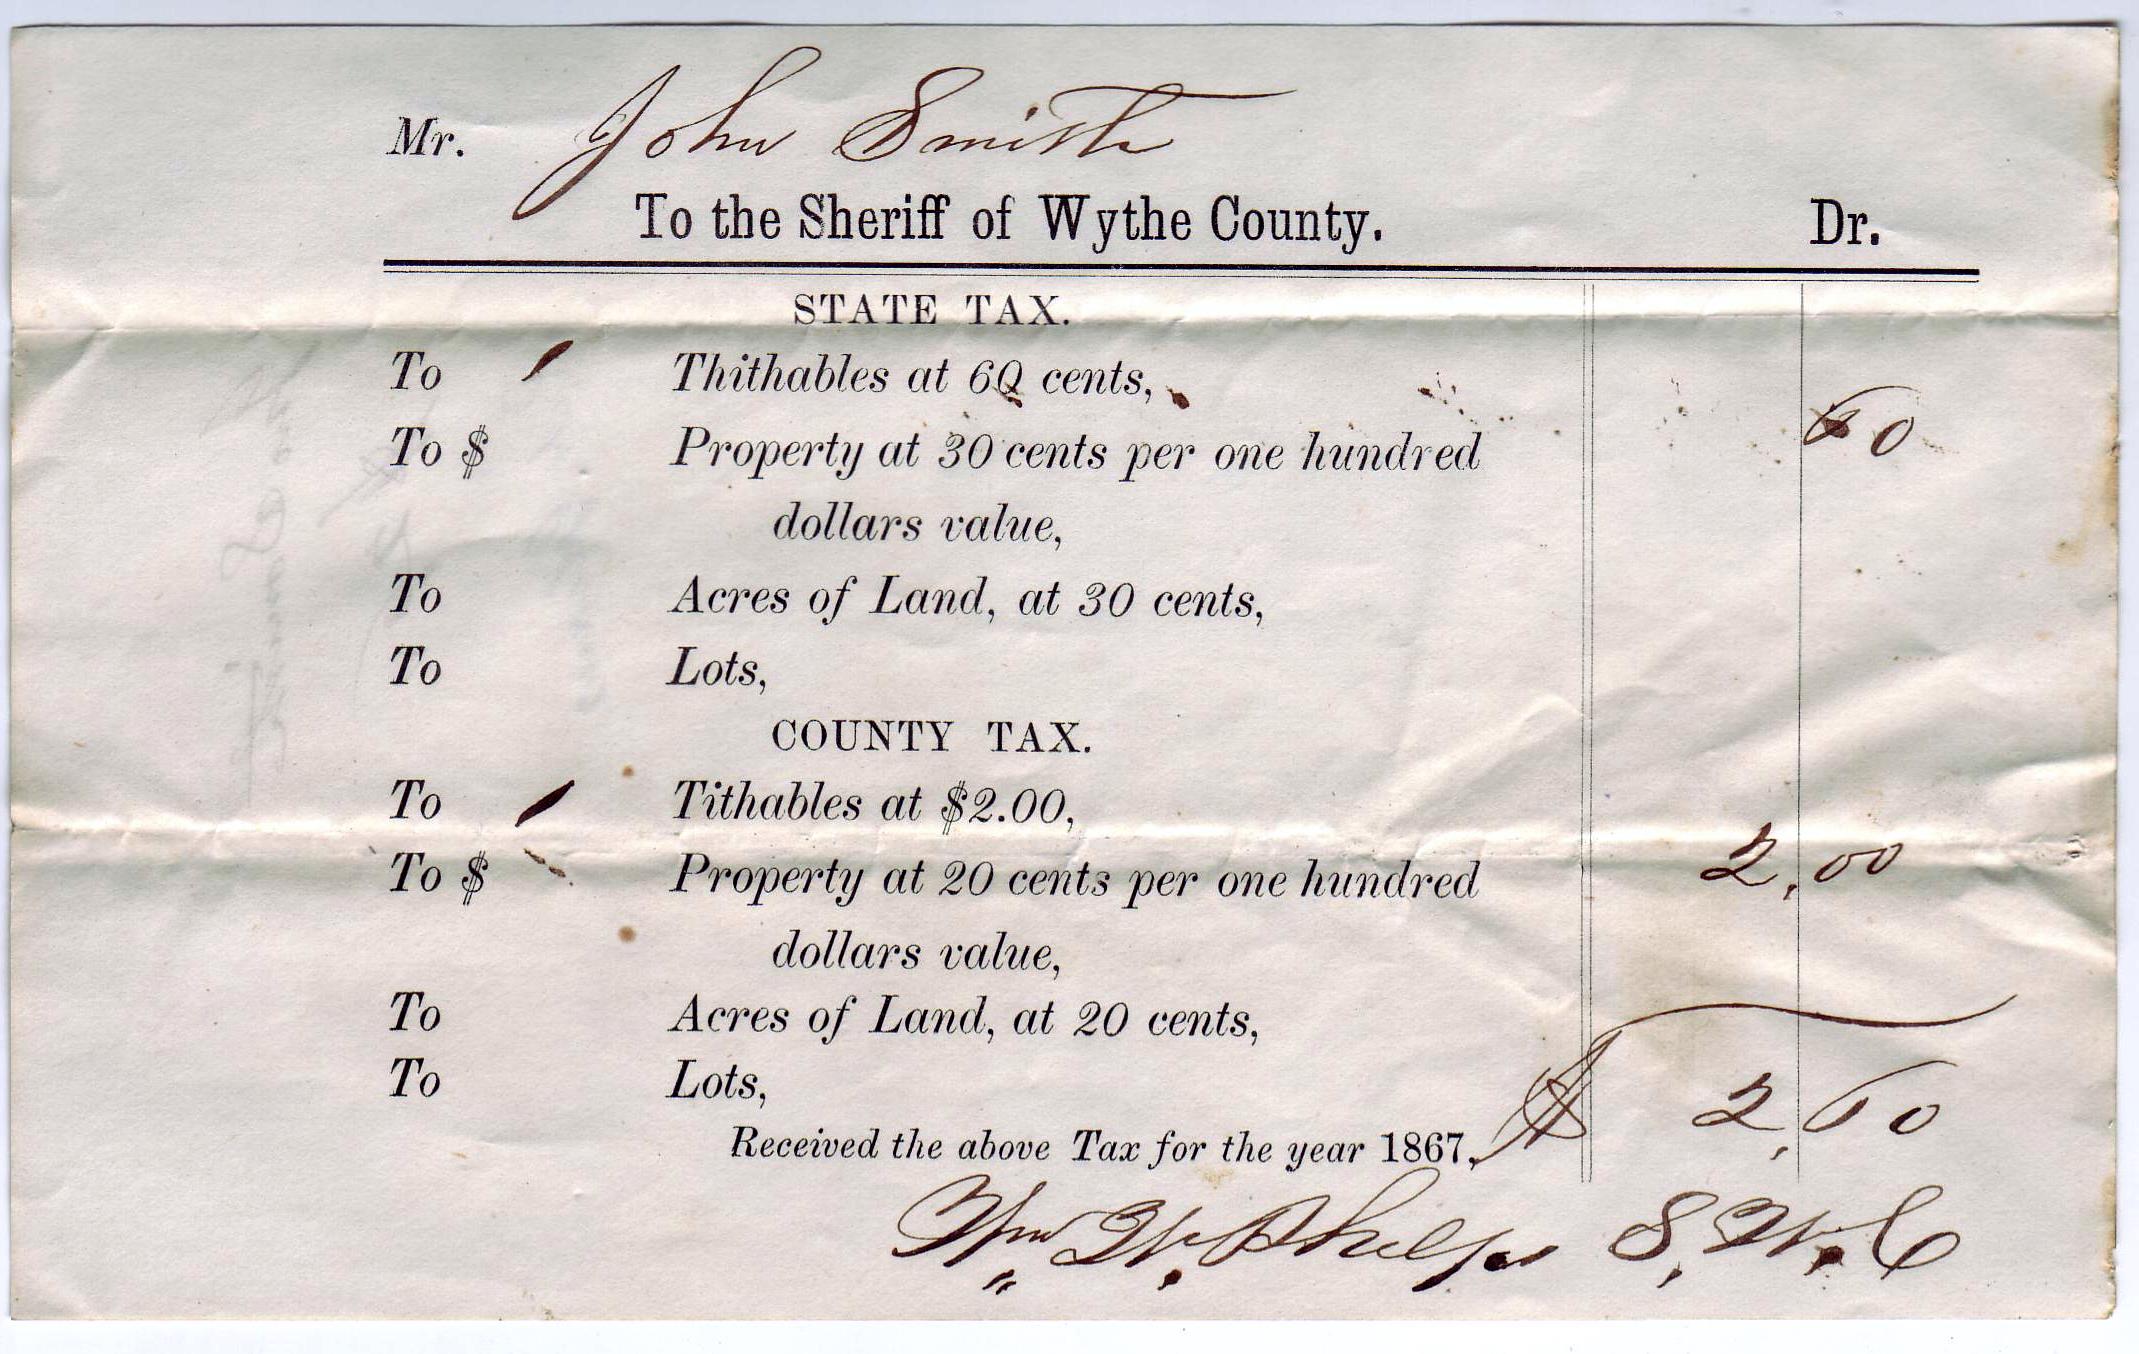 Mr. John Smith
To the Sheriff of Wythe County. Dr.
STATE TAX.
To 1 Thithables at 60 cents, 60
To $ Property at 30 cents per one hundred
dollars value,
To Acres of Land, at 30 cents,
To Lots,
COUNTY TAX.
To 1 Tithables at $2.00, 2.00
To $ Property at 20 cents per one hundred
dollars value,
To Acres of Land, at 20 cents,
To Lots,
Received the above Tax for the year 1867, $ 2.60
Wm W. Phelps S.W.C